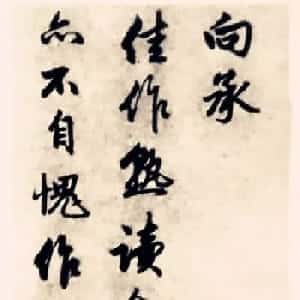 向承
佳作熟读
亦不自愧作